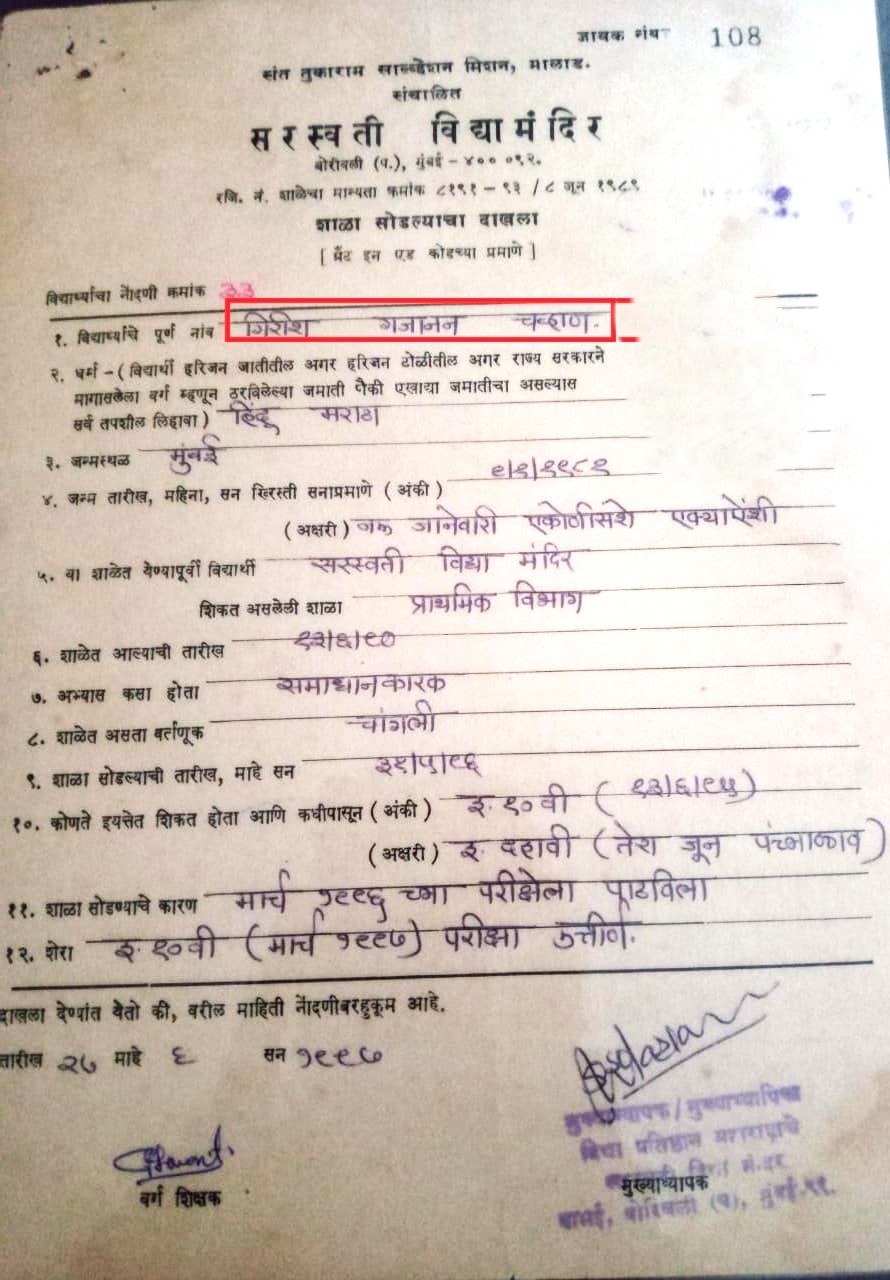 जावक नंबर 108
संत तुकाराम साल्व्हेशन मिशन, मालाड.
संचालित
सरस्वती विद्यामंदिर
बोरीवली (प.), मुंबई – ४०० ०९२.
रजि. नं. शाळेचा मान्यता क्रमांक ८१९१ – ९३ / ८ जून १९८९
शाळा सोडल्याचा दाखला
[ ग्रँट इन एड कोडच्या प्रमाणे ]
विद्यार्थ्याचा नोंदणी क्रमांक ३३
१. विद्यार्थ्याचे पूर्ण नांव गिरीश गजानन चव्हाण.
२. धर्म – ( विद्यार्थी हरिजन जातीतील अगर हरिजन टोळीतील अगर राज्य सरकारने
मागासलेला वर्ग म्हणून ठरविलेल्या जमाती पैकी एखाद्या जमातीचा असल्यास
सर्व तपशील लिहावा ) हिंदू मराठा
३. जन्मस्थळ मुंबई
४. जन्म तारीख, महिना, सन खिरस्ती सनाप्रमाणे ( अंकी ) ९/१/१९८१
( अक्षरी ) नऊ जानेवारी एकोणीसशे एक्याऐंशी
५. या शाळेत येण्यापूर्वी विद्यार्थी सरस्वती विद्या मंदिर
शिकत असलेली शाळा प्राथमिक विभाग
६. शाळेत आल्याची तारीख १३/६/९०
७. अभ्यास कसा होता समाधानकारक
८. शाळेत असता वर्तणूक चांगली
९. शाळा सोडल्याची तारीख, माहे सन ३१/५/९६
१०. कोणते इयत्तेत शिकत होता आणि कधीपासून ( अंकी ) इ. १० वी ( १३/६/९५ )
( अक्षरी ) इ. दहावी ( तेरा जून पंच्याण्णव )
११. शाळा सोडण्याचे कारण मार्च १९९६ च्या परीक्षेला पाठविला
१२. शेरा इ. १० वी ( मार्च १९९७ ) परीक्षा उत्तीर्ण.
दाखला देण्यांत येतो की, वरील माहिती नोंदणीबरहुकूम आहे.
तारीख २७ माहे ६ सन १९९७
मुख्याध्यापक / मुख्याध्यापिका
विद्या प्रतिष्ठान महाराष्ट्राचे
मुख्याध्यापक
वर्ग शिक्षक
बाभई, बोरिवली (प), मुंबई-९१.